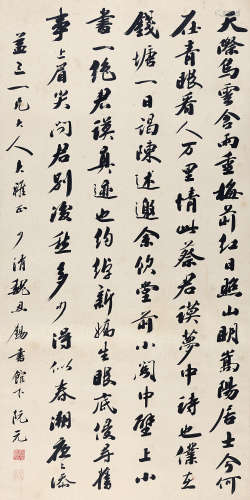 天際烏雲含雨重樓前紅日照山明嵩陽居士今何
在青眼看人萬里情此蔡君謨夢中詩也僕在
錢塘一日謁陳述邀余飲堂前小閣中壁上小
書一絕君謨真迹也約綽新嬌生眼底侵尋舊
事上眉尖問君別後愁多少得似春潮夜〻添
三一兄大人大雅正 少清魏 錫書館下 阮元